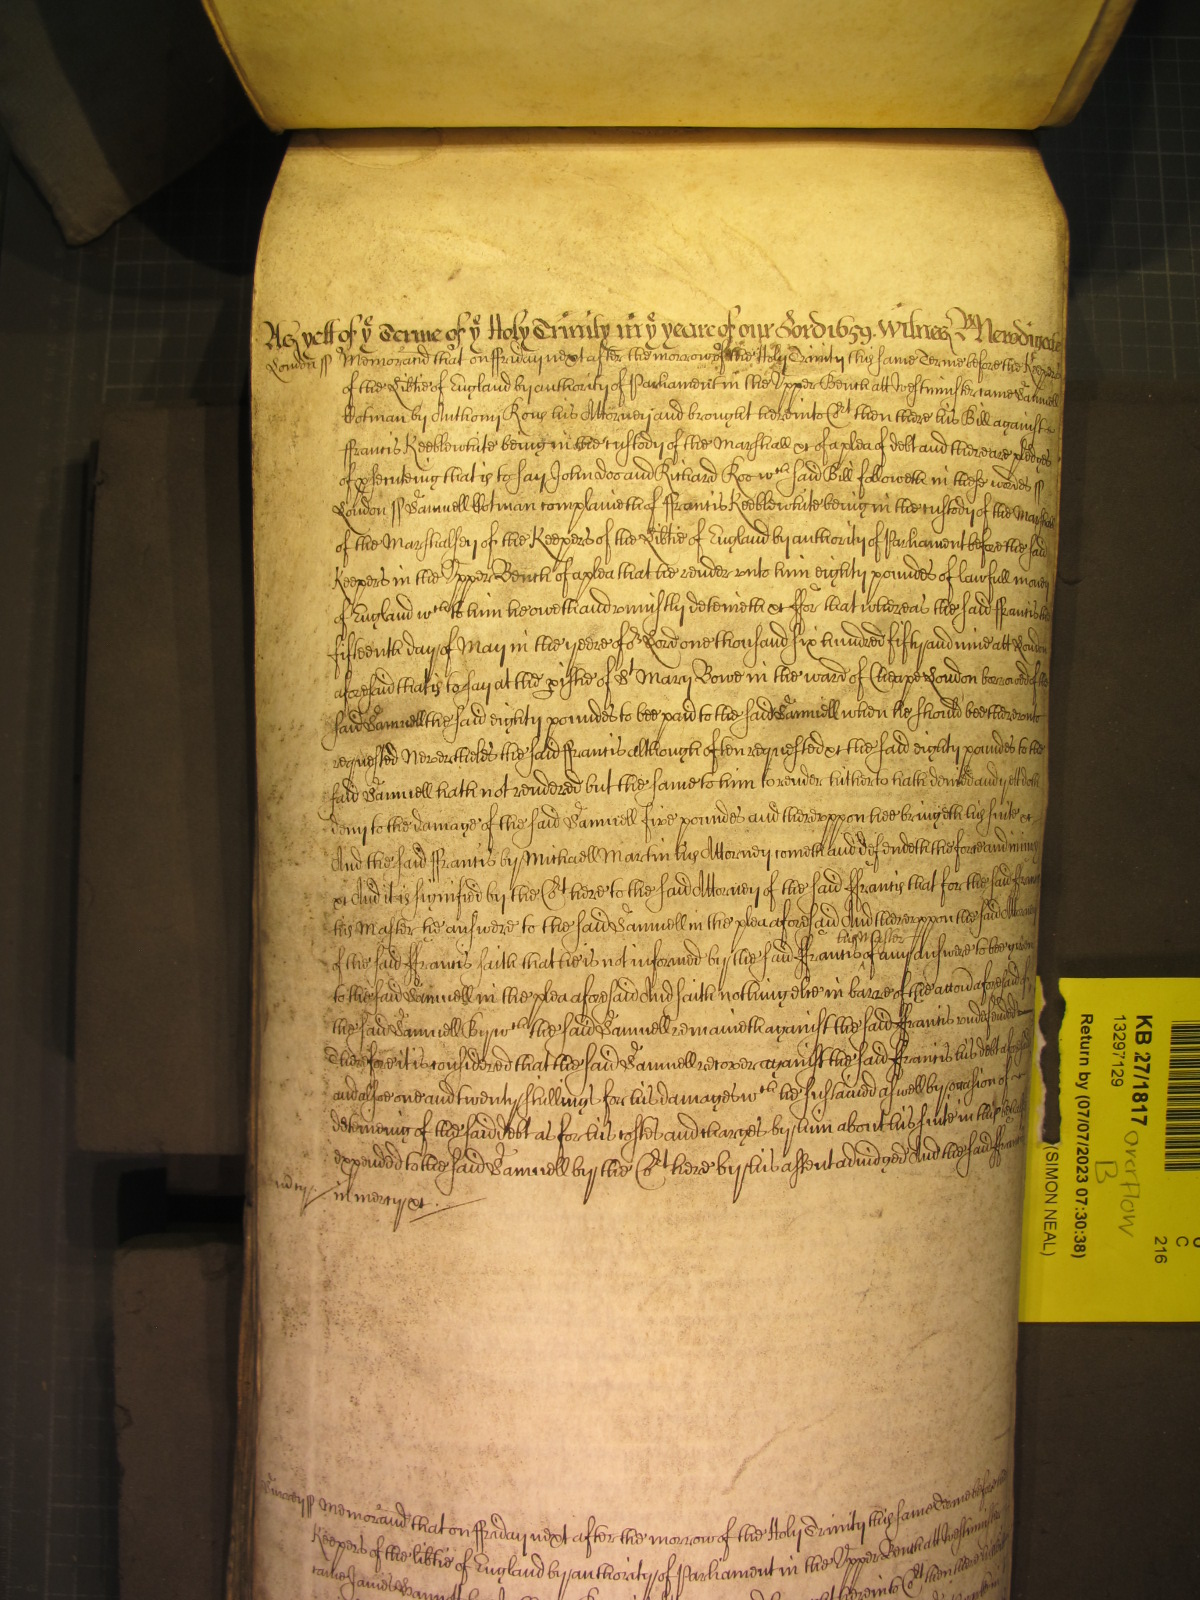 As yett of yͤ Terme of yͤ Holy Trinity in yͤ yeare of our Lord 1659. Witnes Newdigate
London ss Memorand that on ffryday next after the morrow of the Holy Trinity this same Terme before the Keepers
of the Lib̃tie of England by authority of Parliament in the Upper Bench att Westminster came Samuell
by Anthony Rous his Attorney and brought here into Coͬt then there his Bill against
ffrancis Keeblewhite being in the custody of the Marshall &c of a plea of debt and there are pledges
of p̱secuteing that is to say John Doo and Richard Roo wᶜʰ said Bill followeth in these wordes ss
London ss Samuell complaineth of ffrancis Keeblewhite being in the custody of the Marshall
of the Marshalsey of the Keepers of the Lib̃tie of England by authority of Parliament before the said
Keepers in the Upper Bench of a plea that he render unto him eighty poundes of lawfull money
of England wᶜʰ to him he oweth and uniustly deteineth &c ffor that whereas the said ffrancis the
fifteenth day of May in the yeere of oͬ Lord one thousand six hundred fifty and nine att London
aforesaid that is to say at the p̱ishe of Sᵗ Mary Bowe in the ward of Cheape London borrowed of the
said Samuell the said eighty poundes to bee paid to the said Samuell when he should bee thereunto
requested Neverthelesse the said ffrancis although often requested &c the said eighty poundes to the
said Samuell hath not rendered but the same to him to render hitherto hath denied and yett doth
deny to the damage of the said Samuell five poundes and thereuppon hee bringeth his suite &c
And the said ffrancis by Michaell Martin his Attorney cometh and defendeth the force and iniury
&c And it is signified by the Coͬt here to the said Attorney of the said ffrancis that for the said ffrancis
his Master he answere to the said Samuell in the plea aforesaid And thereuppon the said Attorney
of the said ffrancis saith that he is not informed by the said ffrancis his Master of any answere to bee given
to the said Samuell in the plea aforesaid And saith nothing else in barre of the accon̄ aforesaid of
the said Samuell By wᶜʰ the said Samuell remaineth against the said ffrancis undefended
Therefore it is considered that the said Samuell recover against the said ffrancis his debt aforesaid
and alsoe one and twenty shillings for his damages wᶜʰ he sustained aswell by occasion of
deteineing of the said debt as for his costes and charges by him about his suite in this behalfe
expended to the said Samuell by the Coͬt here by his assent adiudged And the said ffrancis
in mercy &c
Surrey ss Memorand that on ffryday next after the morrow of the Holy Trinity this same Terme before the
Keepers of the lib̃tie of England by authority of Parliament in the Upper Bench att Westminster
came James here into Coͬt then there
KB 27/1817
13297129
Return by (07/07/2023 07:30:38)
(SIMON NEAL)
overflow
B
C
216